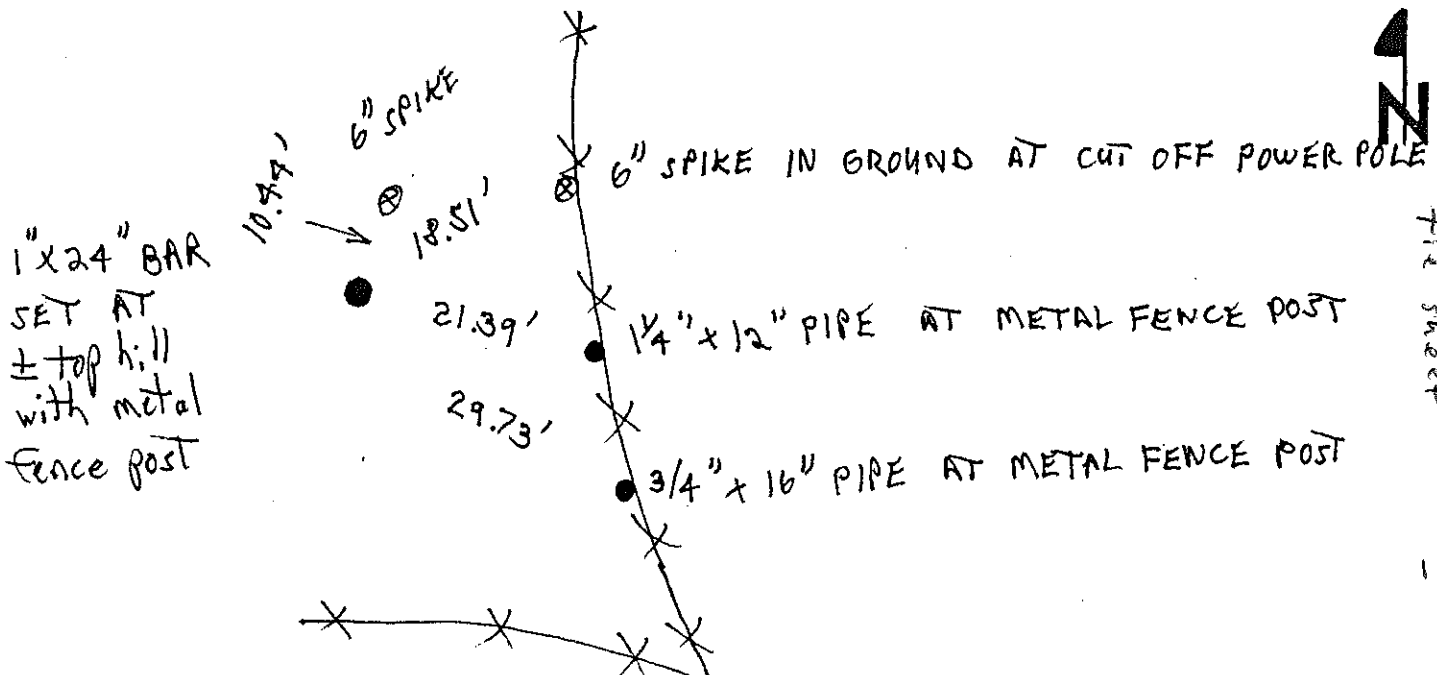 N
6" SPIKE
10.44'
6" SPIKE IN GROUND AT CUT OFF POWER POLE
18.51'
1" X 24" BAR
SET AT
± top hill
with metal
fence post
21.39'
1 1/4" x 12" PIPE AT METAL FENCE POST
29.73'
3/4" x 16" PIPE AT METAL FENCE POST
Tie sheet
1